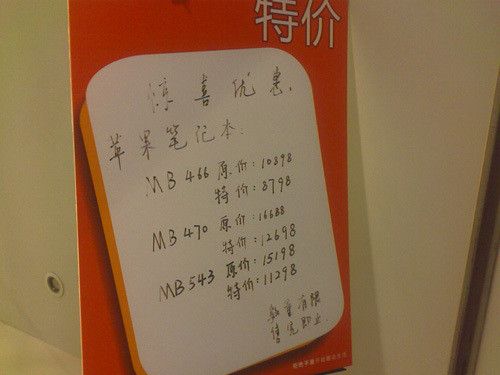 特价
惊喜优惠.
苹果笔记本.
MB 466 原价:10898
特价:8798
MB 470 原价:16688
特价:12698
MB 543 原价:15198
特价:11298
数量有限
售完即止.